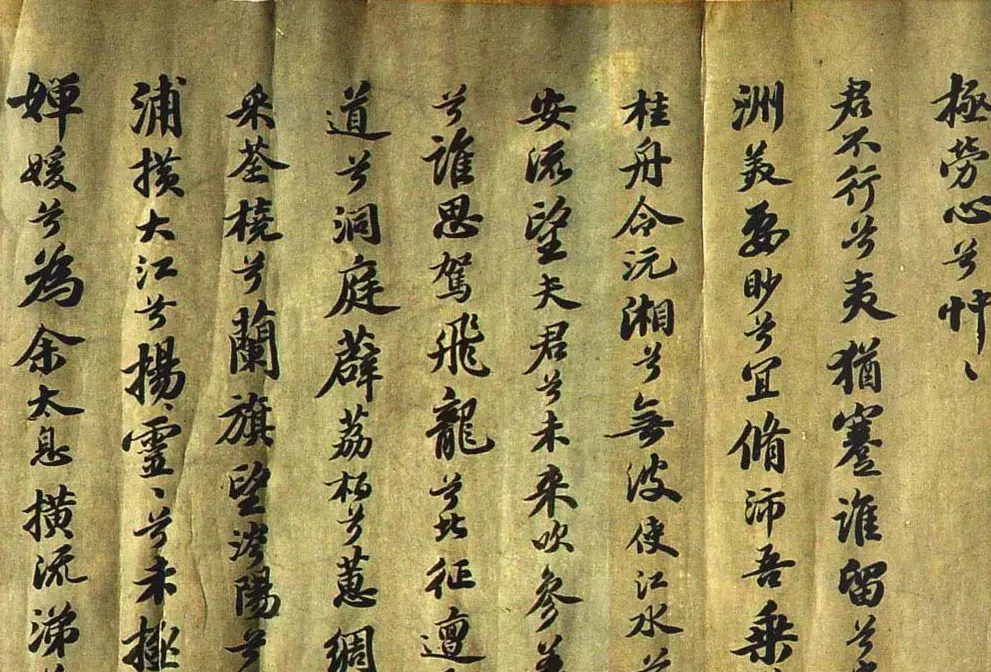 極勞心兮忡〻
君不行兮夷猶蹇誰留兮
洲美要眇兮宜脩沛吾乘
桂舟令沅湘兮無波使江水兮
安流望夫君兮未來吹參差
兮誰思駕飛龍兮北征邅
道兮洞庭薜荔柏兮蕙綢
采荃橈兮蘭旗望涔陽兮
浦橫大江兮揚〻靈〻兮未極
嬋媛兮為余太息橫流涕